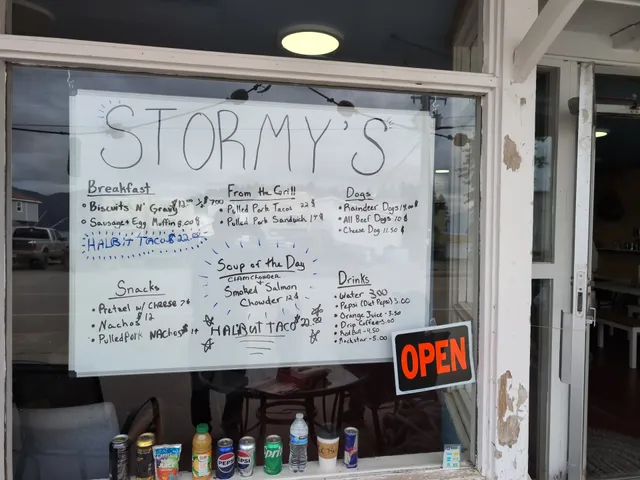 STORMY'S
Breakfast
• Biscuits N' Gravy $12.00 ½ $7.00
• Sausage + Egg Muffin 8.00$
HALBIT TACO$ 22.00
From the Grill
• Pulled Pork Tacos 22$
• Pulled Pork Sandwich 17$
Dogs
• Raindeer Dogs 14.00$
• All Beef Dogs 10$
• Cheese Dog 11.50$
Snacks
• Pretzel w/ Cheese 7$
• Nachos $12
• Pulled Pork Nachos $19
Soup of the Day
CLAM CHOWDER
Smoked Salmon
Chowder 12$
HALIBUT TACO 22.00
Drinks
• Water 3.00
• Pepsi (Diet Pepsi) 3.00
• Orange Juice - 3.50
• Drip Coffee 3.00
• Red Bull - 4.50
• Rockstar - 5.00
OPEN
PEPSI
PEPSI